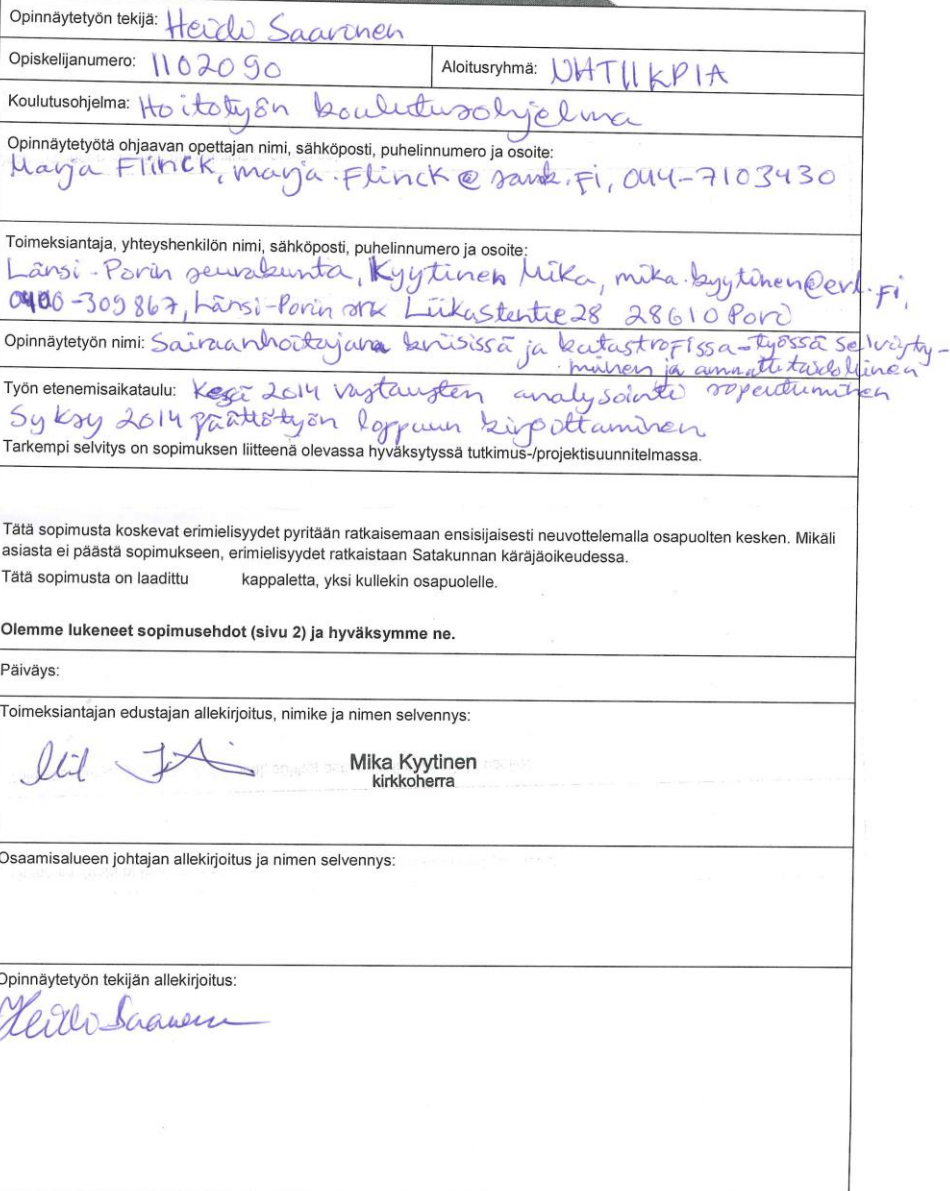 Opinnäytetyön tekijä: Heidi Saarinen
Opiskelijanumero: 1102090 Aloitusryhmä: NHT11KPIA
Koulutusohjelma: Hoitotyön koulutusohjelma
Opinnäytetyötä ohjaavan opettajan nimi, sähköposti, puhelinnumero ja osoite:
Marja Flinck, marja.Flinck@samk.fi, 044-7103430
Toimeksiantaja, yhteyshenkilön nimi, sähköposti, puhelinnumero ja osoite:
Länsi-Porin seurakunta, Kyytinen Mika, mika.kyytinen@evl.fi,
0400-309867, Länsi-Porin srk Liikastentie 28 28610 Pori
Opinnäytetyön nimi: Sairaanhoitajana kriisissä ja katastrofissa-työssä selviyty-
minen ja ammattitaidollinen
Työn etenemisaikataulu: Kesä 2014 vastausten analysointi sopeutuminen
Syksy 2014 päättötyön loppuun kirjoittaminen
Tarkempi selvitys on sopimuksen liitteenä olevassa hyväksytyssä tutkimus-/projektisuunnitelmassa.
Tätä sopimusta koskevat erimielisyydet pyritään ratkaisemaan ensisijaisesti neuvottelemalla osapuolten kesken. Mikäli
asiasta ei päästä sopimukseen, erimielisyydet ratkaistaan Satakunnan käräjäoikeudessa.
Tätä sopimusta on laadittu kappaletta, yksi kullekin osapuolelle.
Olemme lukeneet sopimusehdot (sivu 2) ja hyväksymme ne.
Päiväys:
Toimeksiantajan edustajan allekirjoitus, nimike ja nimen selvennys:
Mika Kyytinen
kirkkoherra
Osaamisalueen johtajan allekirjoitus ja nimen selvennys:
Opinnäytetyön tekijän allekirjoitus:
Heidi Saarinen